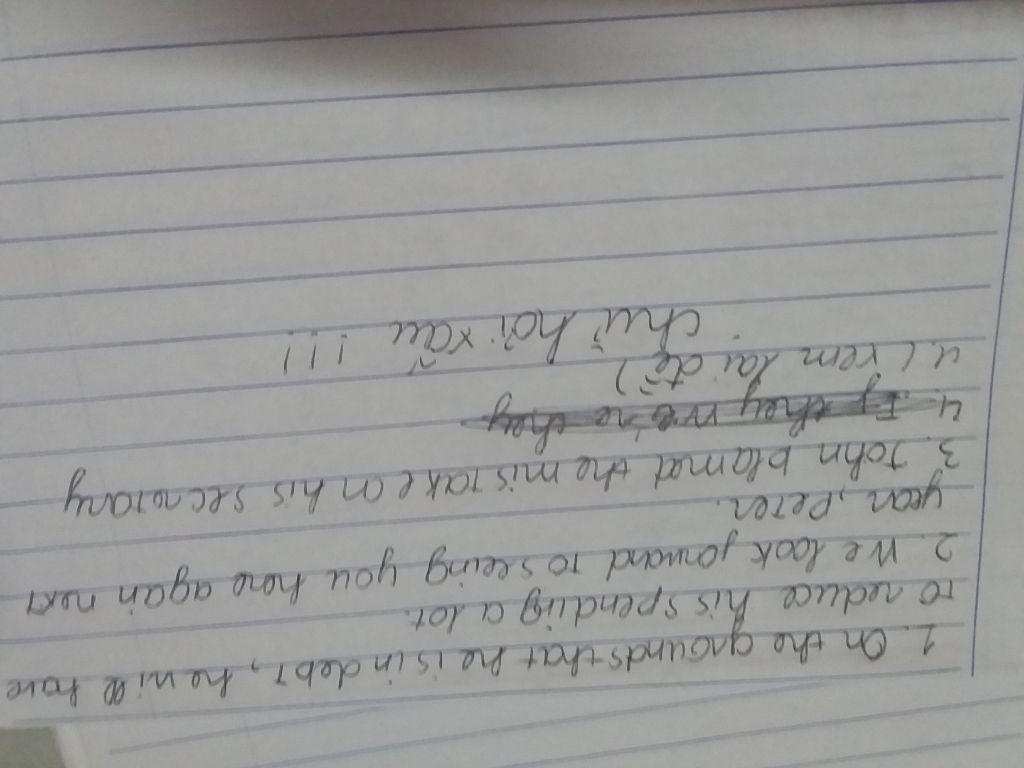 1. On the grounds that he is in debt, he will have
to reduce his spending a lot.
2. We look forward to seeing you here again next
year, Peter.
3. John blamed the mistake on his secretary
4. If they were they
4. (xem lại đề)
chữ hơi xấu !!!